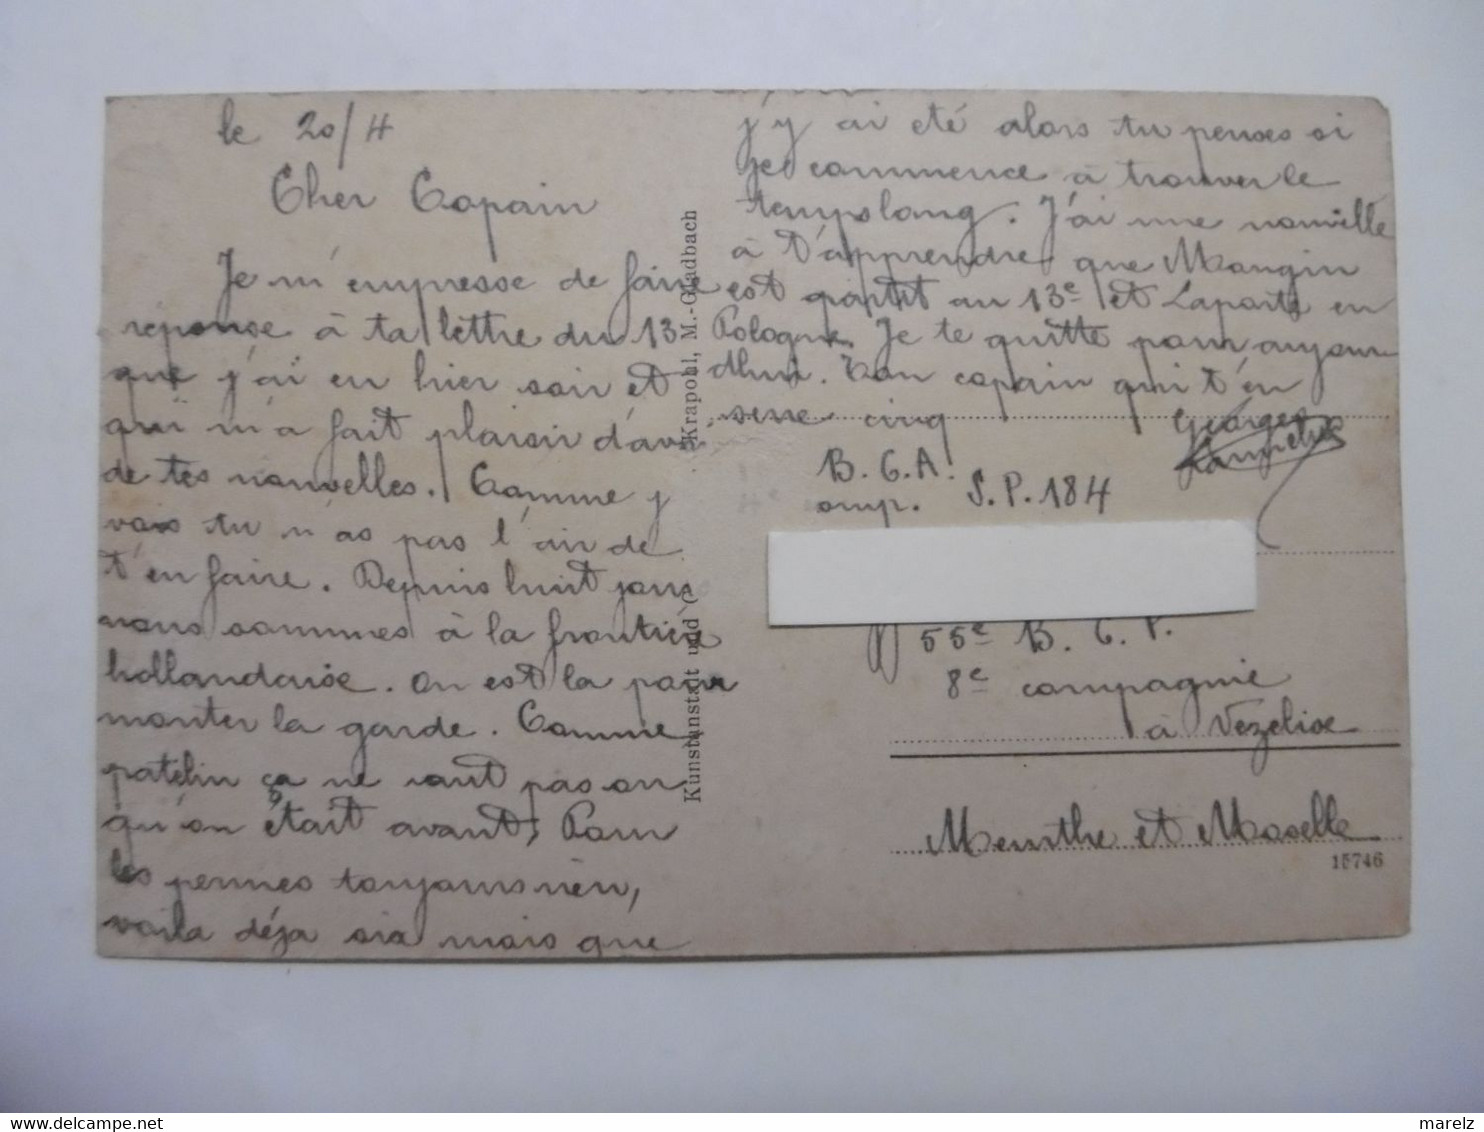 le 20/4
Cher Copain
Je m'empresse de faire
réponse à ta lettre du 13
que j'ai eu hier soir et
qui m'a fait plaisir d'avoir
de tes nouvelles. Comme j
vois tu n'as pas l'air de
t'en faire. Depuis huit jours
nous sommes à la frontière
hollandaise. On est la pour
monter la garde. Comme
patelin ça ne vaut pas ou
qu'on était avant, Pour
les permes toujours rien,
voila déja six mois que
j'y ai été alors tu penses si
je commence à trouver le
temps long. J'ai une nouvelle
à t'apprendre que Mangin
est partit au 13e et Laporte en
Pologne. Je te quitte pour aujour
dhui. Ton copain qui t'en
serre cinq
Georges
B. C. A.
omp. S.P. 184
55e B. C. P.
8e compagnie
à Vezelise
Meurthe et Moselle
15746
Kunstanstalt und Krapohl, M.-Gladbach
marelz